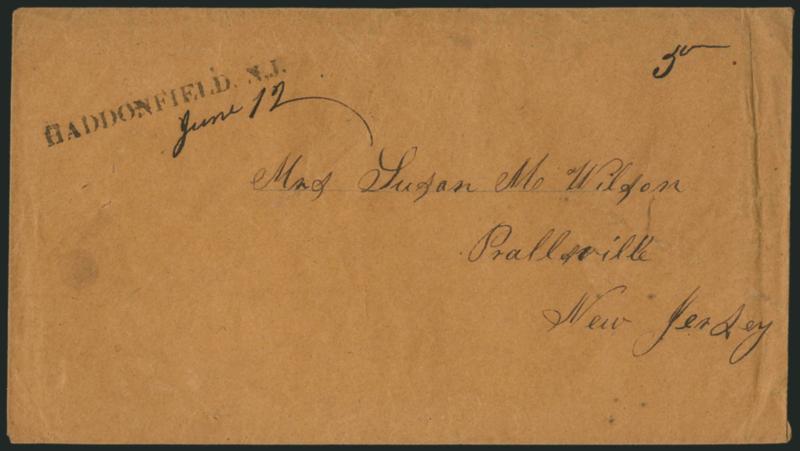 HADDONFIELD. N.J.
June 12
5
Mrs Susan M Wilson
Prallsville
New Jersey